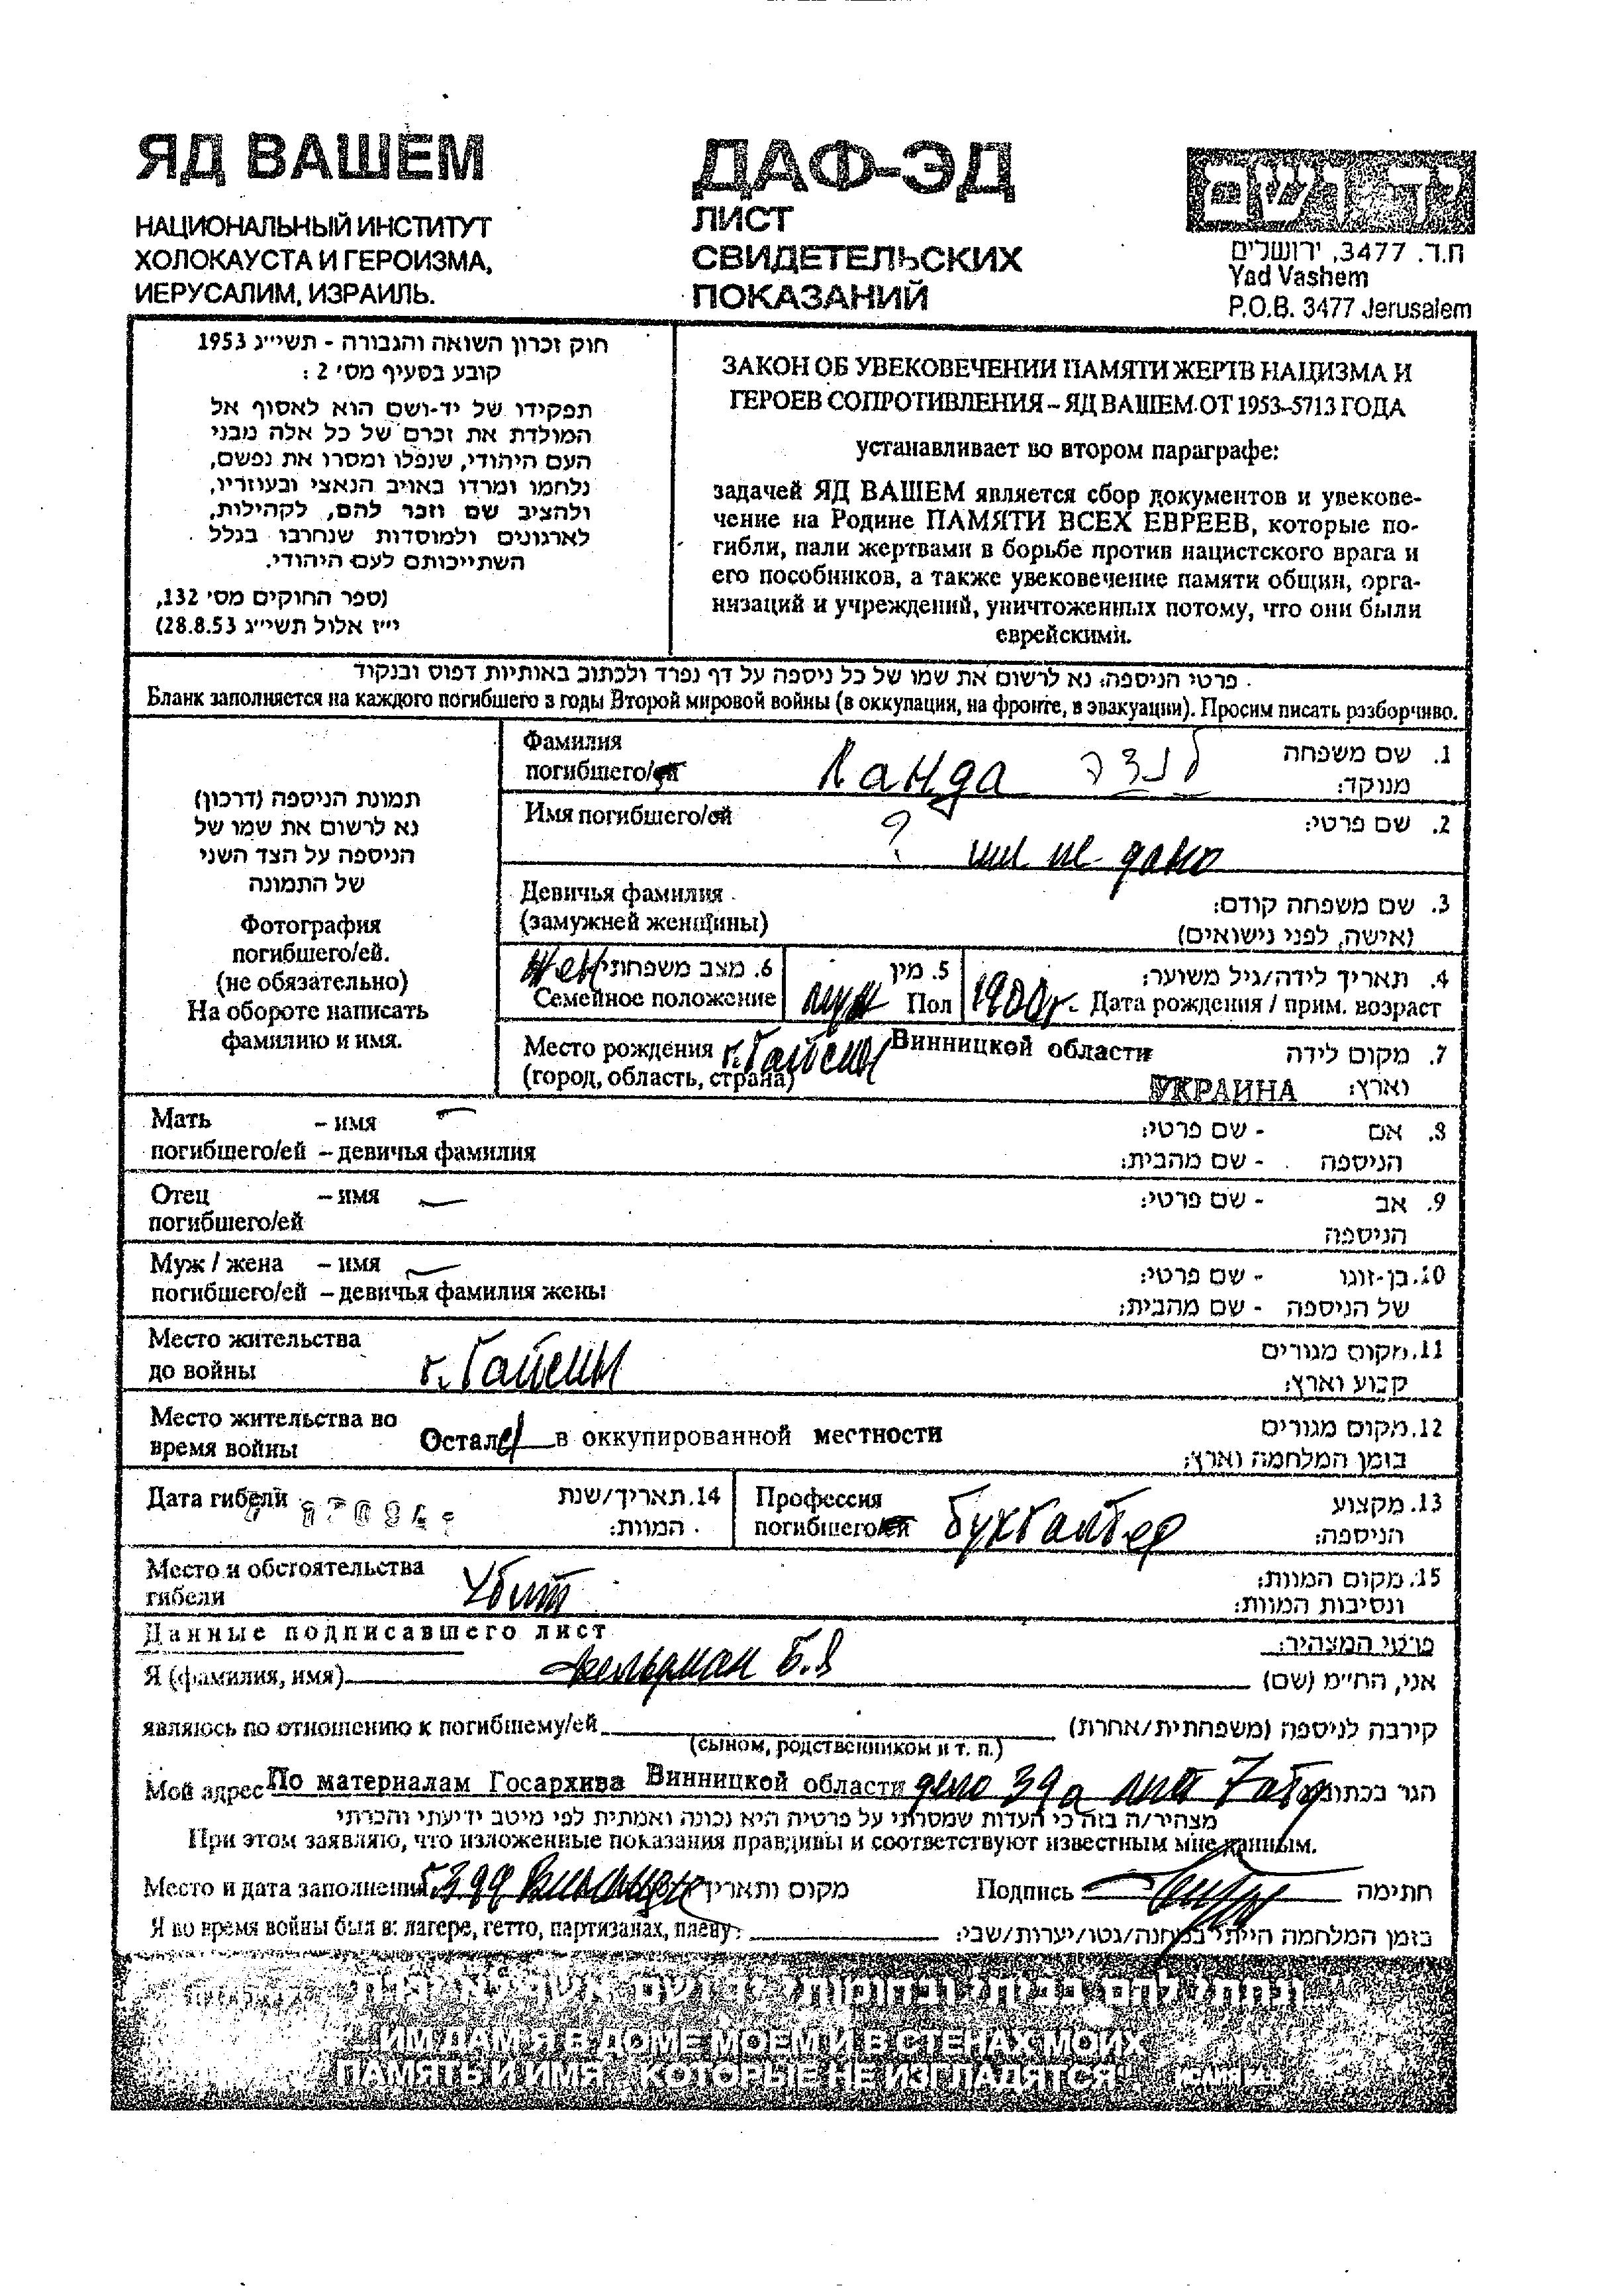 ЯД ВАШЕМ
НАЦИОНАЛЬНЫЙ ИНСТИТУТ
ХОЛОКАУСТА И ГЕРОИЗМА,
ИЕРУСАЛИМ, ИЗРАИЛЬ.
ДАФ-ЭД
ЛИСТ
СВИДЕТЕЛЬСКИХ
ПОКАЗАНИЙ
יד ושם
ת.ד. 3477, ירושלים
Yad Vashem
P.O.B. 3477 Jerusalem
חוק זכרון השואה והגבורה - תשי״ג 1953
קובע בסעיף מס׳ 2 :
תפקידו של יד-ושם הוא לאסוף אל
המולדת את זכרם של כל אלה מבני
העם היהודי, שנפלו ומסרו את נפשם,
נלחמו ומרדו באויב הנאצי ובעוזריו,
ולהציב שם וזכר להם, לקהילות,
לארגונים ולמוסדות שנחרבו בגלל
השתייכותם לעם היהודי.
(ספר החוקים מס׳ 132,
י״ז אלול תשי״ג 28.8.53)
ЗАКОН ОБ УВЕКОВЕЧЕНИИ ПАМЯТИ ЖЕРТВ НАЦИЗМА И
ГЕРОЕВ СОПРОТИВЛЕНИЯ – ЯД ВАШЕМ ОТ 1953–5713 ГОДА
устанавливает во втором параграфе:
задачей ЯД ВАШЕМ является сбор документов и увекове-
чение на Родине ПАМЯТИ ВСЕХ ЕВРЕЕВ, которые по-
гибли, пали жертвами в борьбе против нацистского врага и
его пособников, а также увековечение памяти общин, орга-
низаций и учреждений, уничтоженных потому, что они были
еврейскими.
פרטי הניספה: נא לרשום את שמו של כל ניספה על דף נפרד ולכתוב באותיות דפוס ובנקוד
Бланк заполняется на каждого погибшего в годы Второй мировой войны (в оккупации, на фронте, в эвакуации). Просим писать разборчиво.
תמונת הניספה (דרכון)
נא לרשום את שמו של
הניספה על הצד השני
של התמונה
Фотография
погибшего/ей.
(не обязательно)
На обороте написать
фамилию и имя.
Фамилия
погибшего/ей Ланда לנדה
1. שם משפחה
מנוקד:
Имя погибшего/ей ? имя не дано
2. שם פרטי:
Девичья фамилия
(замужней женщины)
3. שם משפחה קודם:
(אישה, לפני נישואים)
жен 6. מצב משפחתי
Семейное положение
5. מין
муж Пол
4. תאריך לידה/גיל משוער:
1900г. Дата рождения / прим. возраст
Место рождения г. Гайсин Винницкой области
(город, область, страна) УКРАИНА
7. מקום לידה
וארץ:
Мать – имя –
погибшего/ей – девичья фамилия
8. אם - שם פרטי:
הניספה - שם מהבית:
Отец – имя –
погибшего/ей
9. אב - שם פרטי:
הניספה
Муж / жена – имя –
погибшего/ей – девичья фамилия жены
10. בן-זוגו - שם פרטי:
של הניספה - שם מהבית:
Место жительства
до войны г. Гайсин
11. מקום מגורים
קבוע וארץ:
Место жительства во
время войны Остался в оккупированной местности
12. מקום מגורים
בזמן המלחמה וארץ:
Дата гибели
14. תאריך/שנת
המוות:
Профессия
погибшего/ей бухгалтер
13. מקצוע
הניספה:
Место и обстоятельства
гибели Убит
15. מקום המוות:
ונסיבות המוות:
Данные подписавшего лист
פרטי המצהיר:
Я (фамилия, имя) Гельфман Б.Я אני, הח״מ (שם)
являюсь по отношению к погибшему/ей קירבה לניספה (משפחתית/אחרת)
(сыном, родственником и т. п.)
Мой адрес По материалам Госархива Винницкой области дело 39а лит 7 הגר בכתובת
מצהיר/ה בזה כי העדות שמסרתי על פרטיה היא נכונה ואמתית לפי מיטב ידיעתי והכרתי
При этом заявляю, что изложенные показания правдивы и соответствуют известным мне данным.
Место и дата заполнения מקום ותאריך Подпись חתימה
Я во время войны был в: лагере, гетто, партизанах, плену: בזמן המלחמה הייתי במחנה/גטו/יערות/שבי:
ונתתי להם בביתי ובחומותי יד ושם אשר לא יכרת
"...ИМ ДАМ Я В ДОМЕ МОЕМ И В СТЕНАХ МОИХ
ПАМЯТЬ И ИМЯ, КОТОРЫЕ НЕ ИЗГЛАДЯТСЯ".